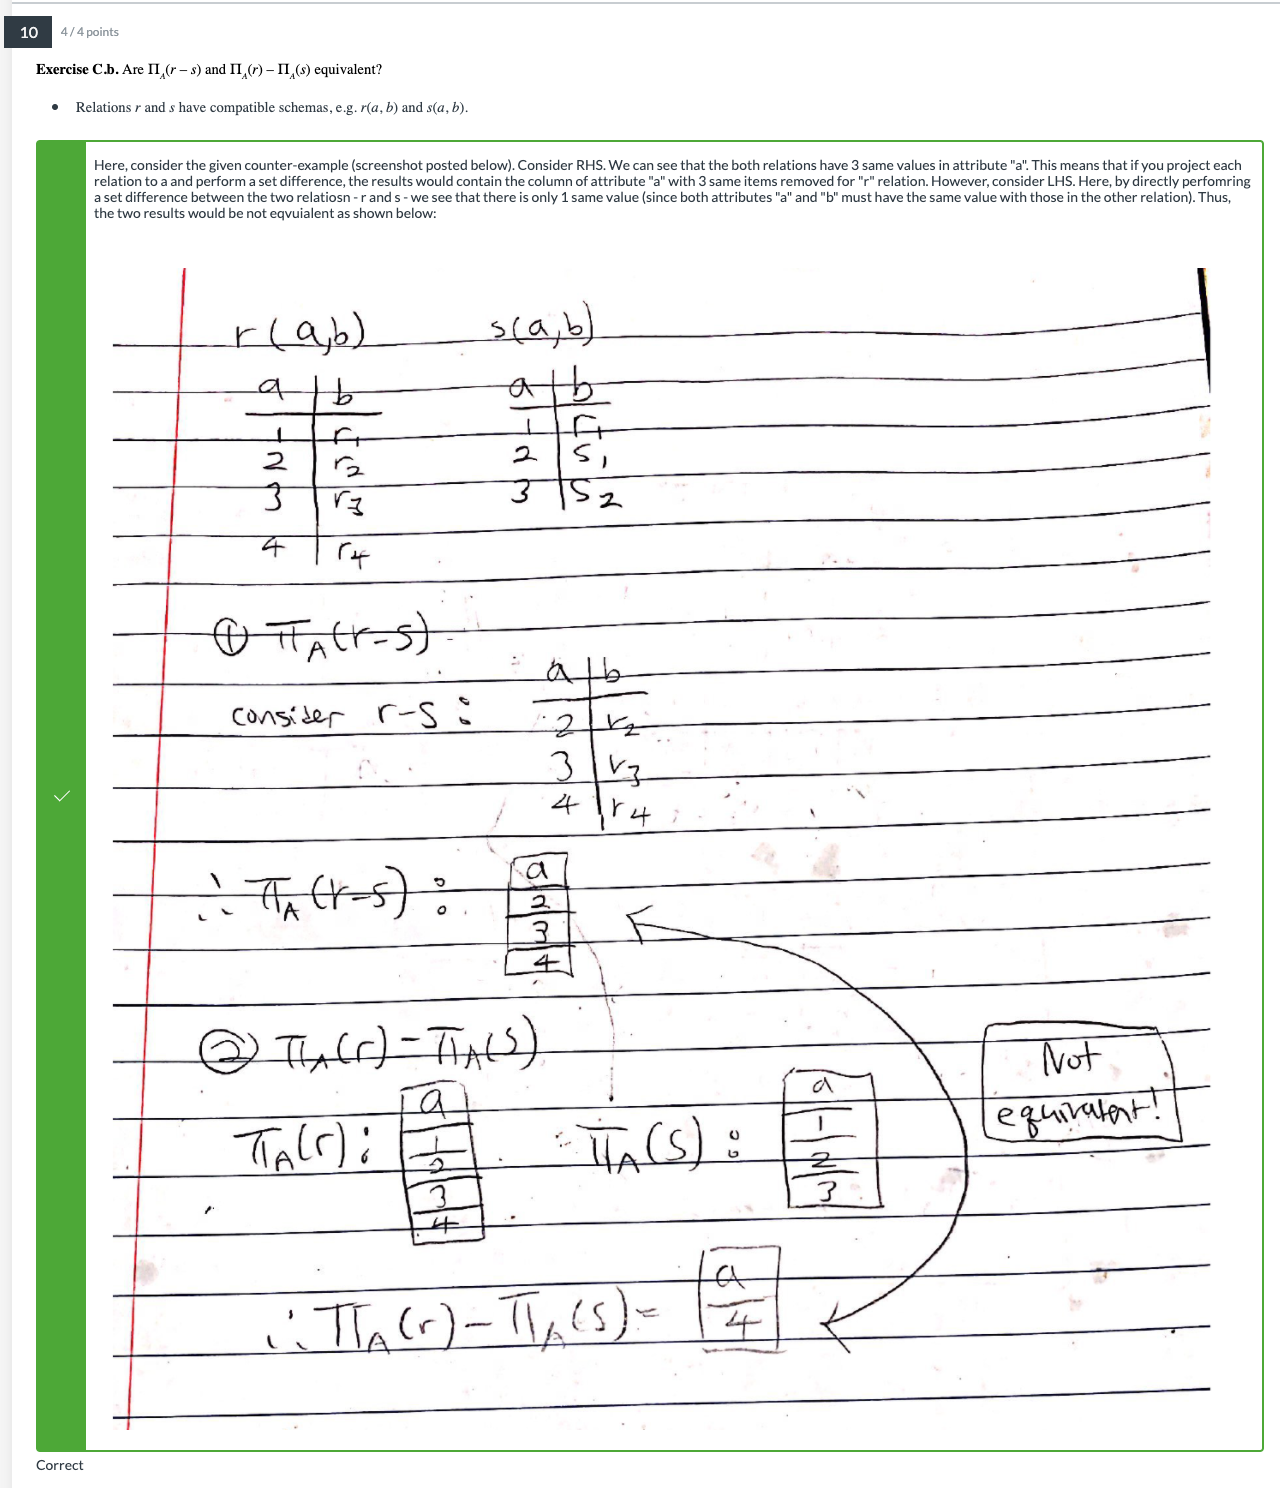 10 4 / 4 points
Exercise C.b. Are Π_A(r – s) and Π_A(r) – Π_A(s) equivalent?
• Relations r and s have compatible schemas, e.g. r(a, b) and s(a, b).
Here, consider the given counter-example (screenshot posted below). Consider RHS. We can see that the both relations have 3 same values in attribute "a". This means that if you project each
relation to a and perform a set difference, the results would contain the column of attribute "a" with 3 same items removed for "r" relation. However, consider LHS. Here, by directly perfomring
a set difference between the two relatiosn - r and s - we see that there is only 1 same value (since both attributes "a" and "b" must have the same value with those in the other relation). Thus,
the two results would be not eqvuialent as shown below:
r(a,b) s(a,b)
a b a b
1 r1 1 r1
2 r2 2 s1
3 r3 3 s2
4 r4
① π_A(r-s)
a b
consider r-s : 2 r2
3 r3
4 r4
∴ π_A(r-s) : a
2
3
4
② π_A(r) - π_A(s)
Not
equivalent!
π_A(r) : a π_A(s) : a
1 1
2 2
3 3
4
∴ π_A(r) - π_A(s) = a
4
Correct